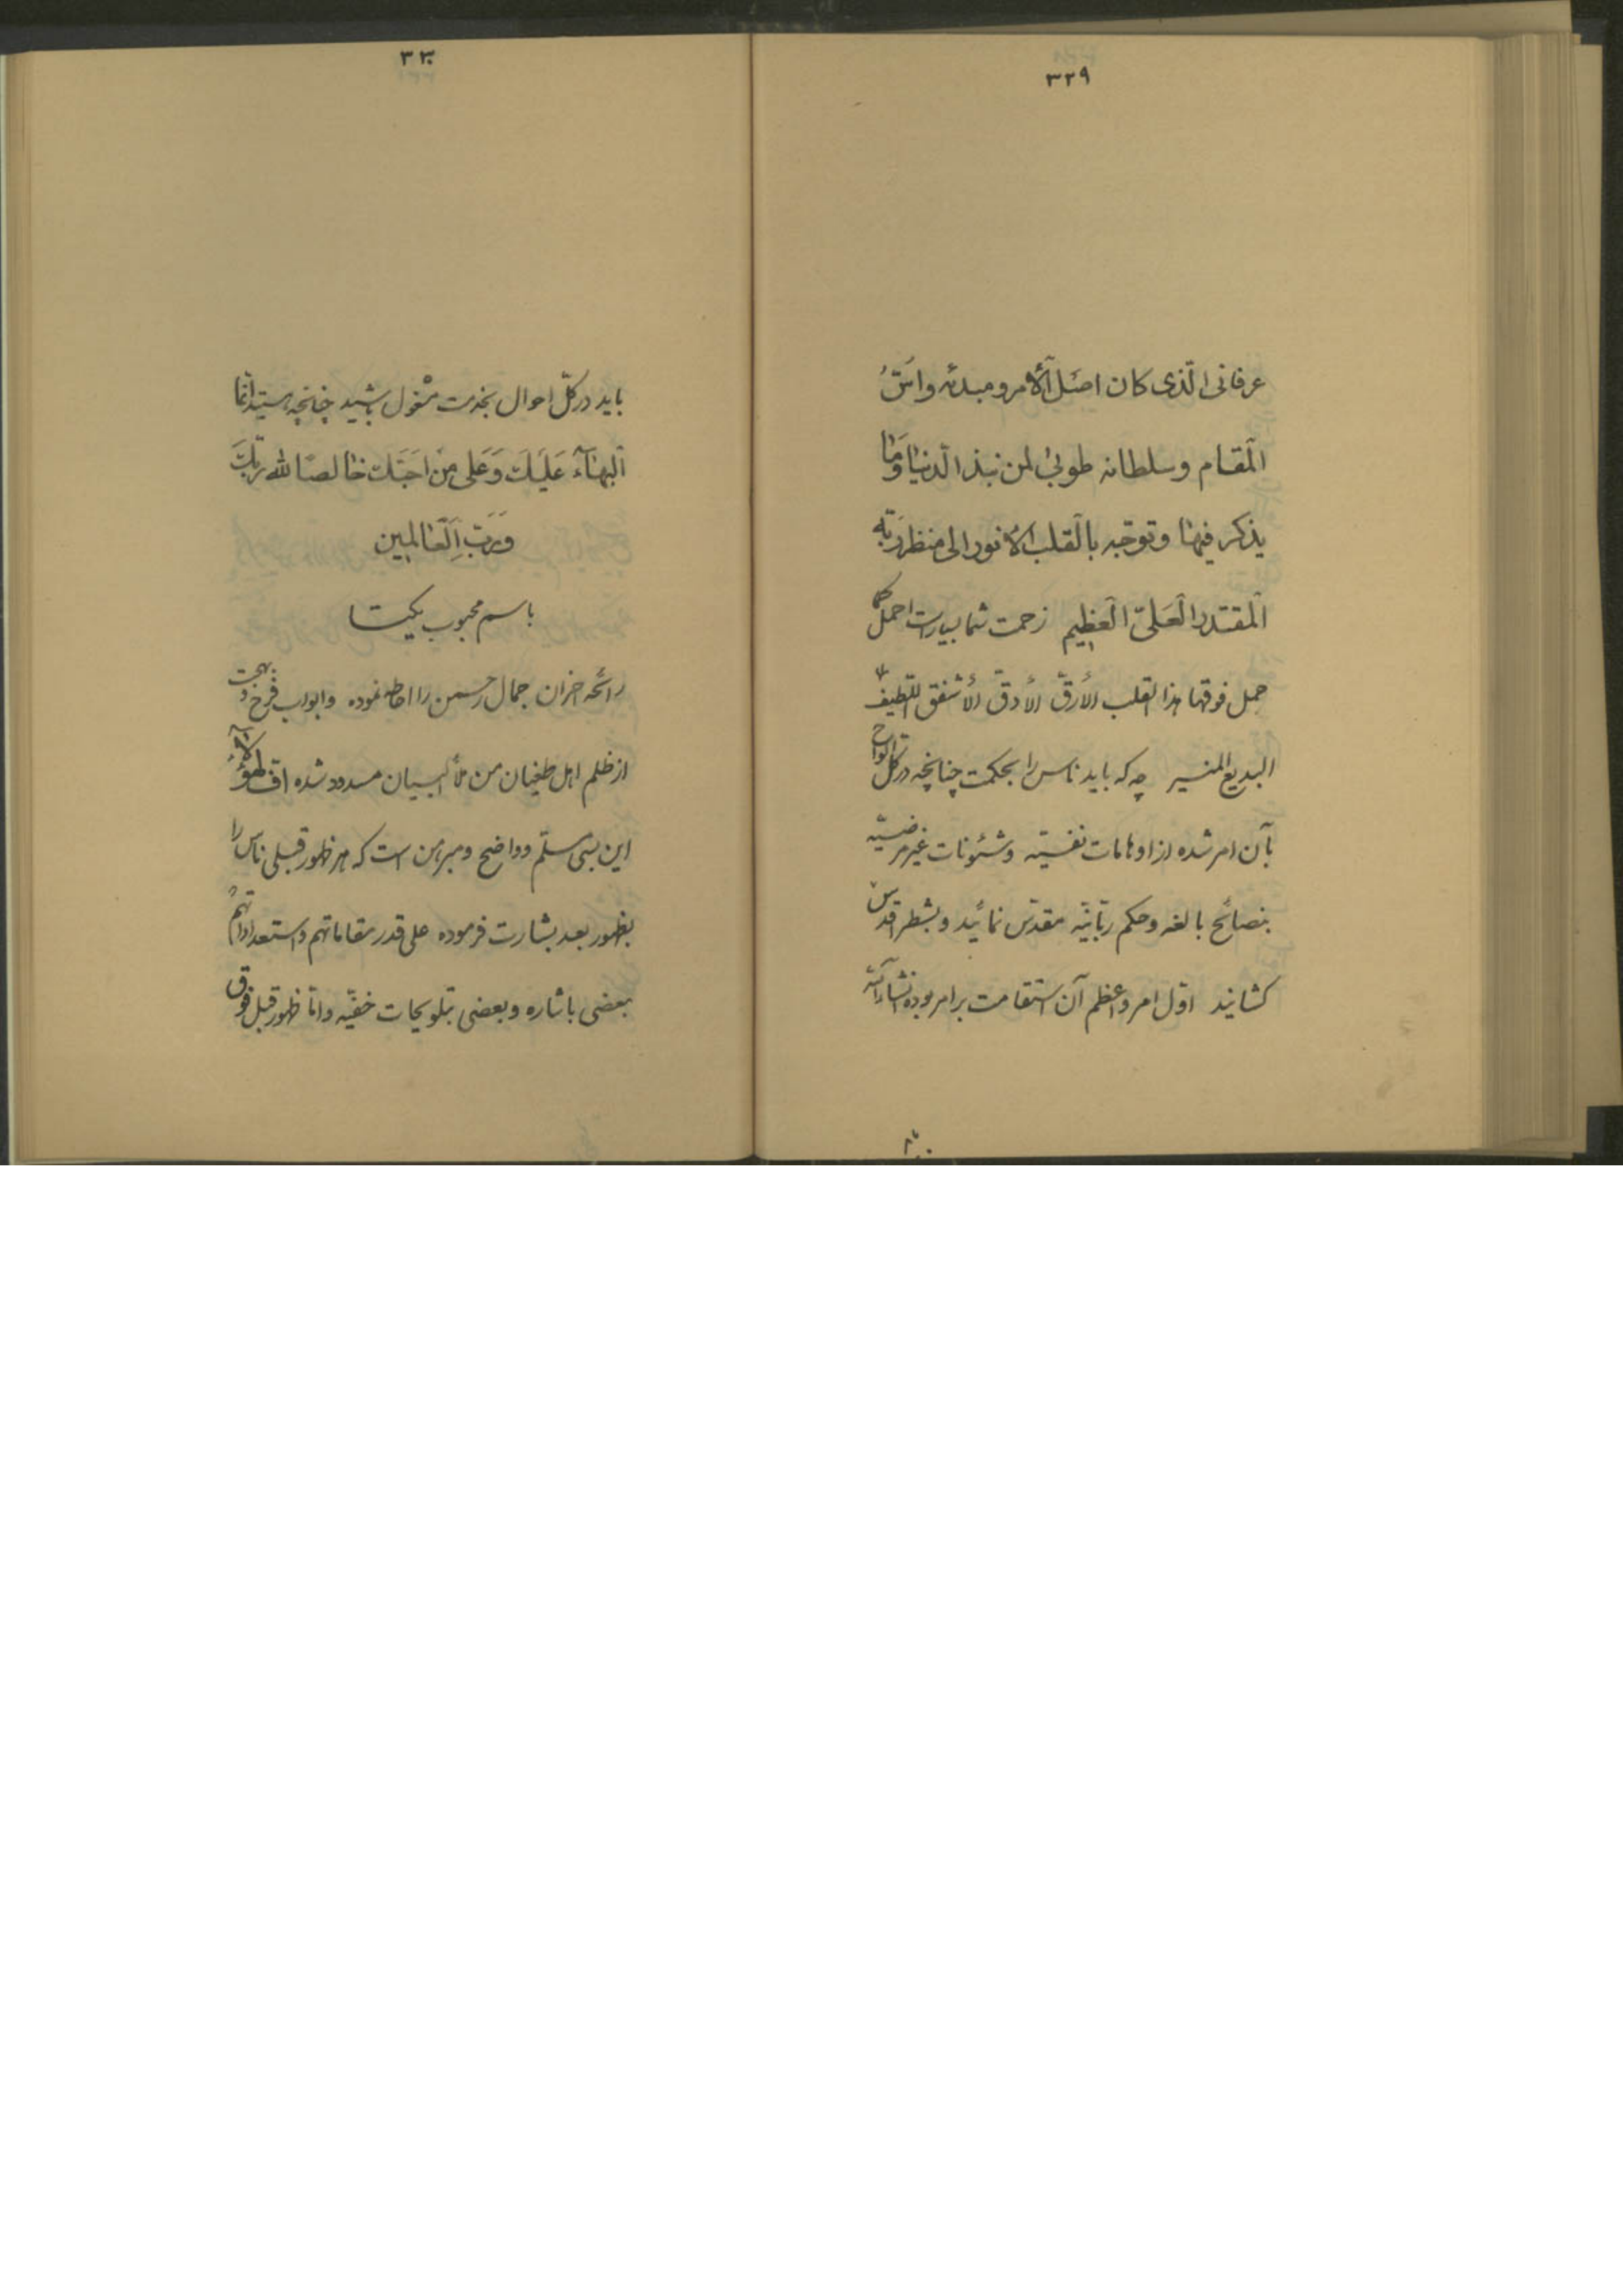 ۳۲۹
عرفانی الّذی کان اصل الأمر و مبدئه و اسّ
المقام و سلطانه طوبی لمن نبذ الدّنیا و ما
یذکر فیها و توجّه بالقلب الأنور الی منظر ربّه
المقتدر العلیّ العظیم زحمت شما بسیار است احمل کما
حمل فوقها هذا القلب الأرقّ الأدقّ الأشفق اللّطیف
البدیع المنیر چه که باید ناس را بحکمت چنانچه در کلّ الواح
بآن امر شده از اوهامات نفسیّه و شئونات غیر مرضیّه
بنصائح بالغه و حکم ربّانیّه مقدّس نمائید و بشطر اقدس
کشانید اوّل امر و اعظم آن استقامت بر امر بوده انشاءالله
۳۳۰
باید در کلّ احوال بخدمت مشغول باشید چنانچه هستید انّما
البهآء علیک و علی من احبّک خالصاً لله ربّک
و ربّ العالمین
باسم محبوب یکتا
رائحه احزان جمال رحمن را احاطه نموده و ابواب فرح و بهجت
از ظلم اهل طغیان من ملأ البیان مسدود شده افّ لهؤلآء
این بسی مسلّم و واضح و مبرهن است که هر ظهور قبلی ناس را
بظهور بعد بشارت فرموده علی قدر مقاماتهم و استعداداتهم
بعضی باشاره و بعضی بتلویحات خفیّه و امّا ظهور قبل فوق